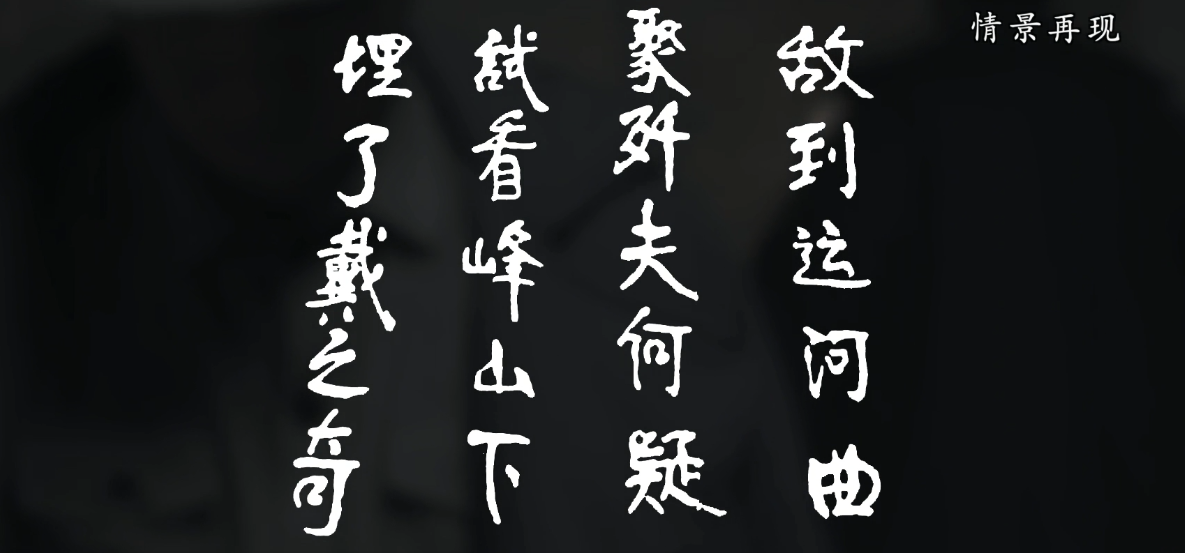 情景再现
敌到运河曲
聚歼夫何疑
試看峰山下
埋了戴之奇